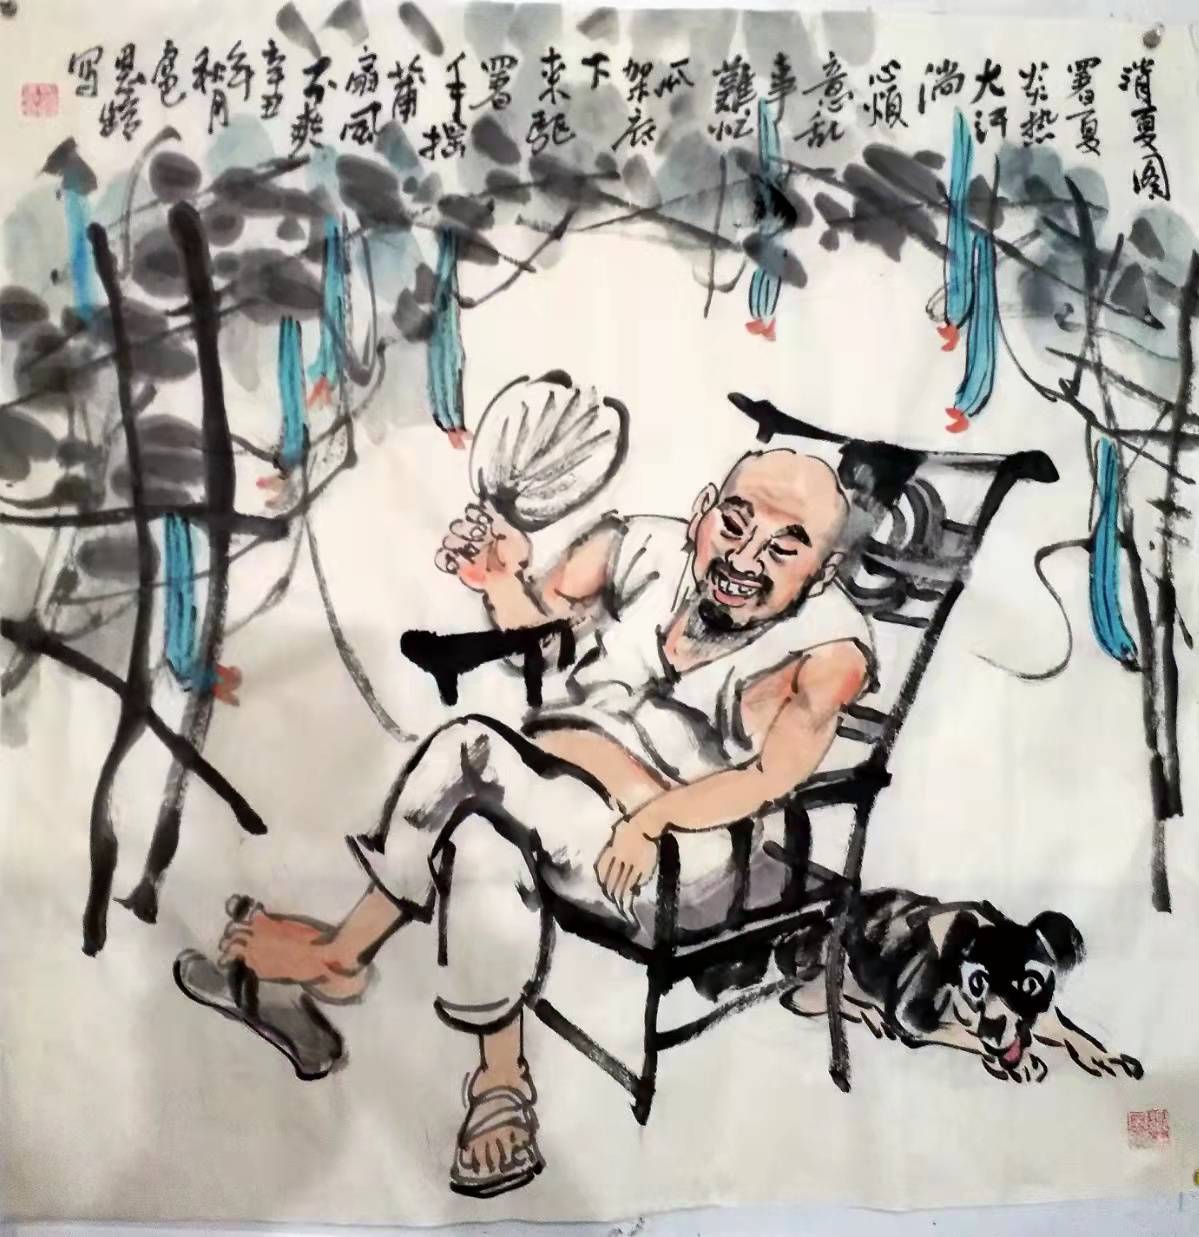 消夏图
暑夏
炎热
大汗
淌
心烦
意乱
事
难忙
瓜
架底
下
来驱
暑
手摇
蒲
扇风
不爽
辛丑
年
秋月
写